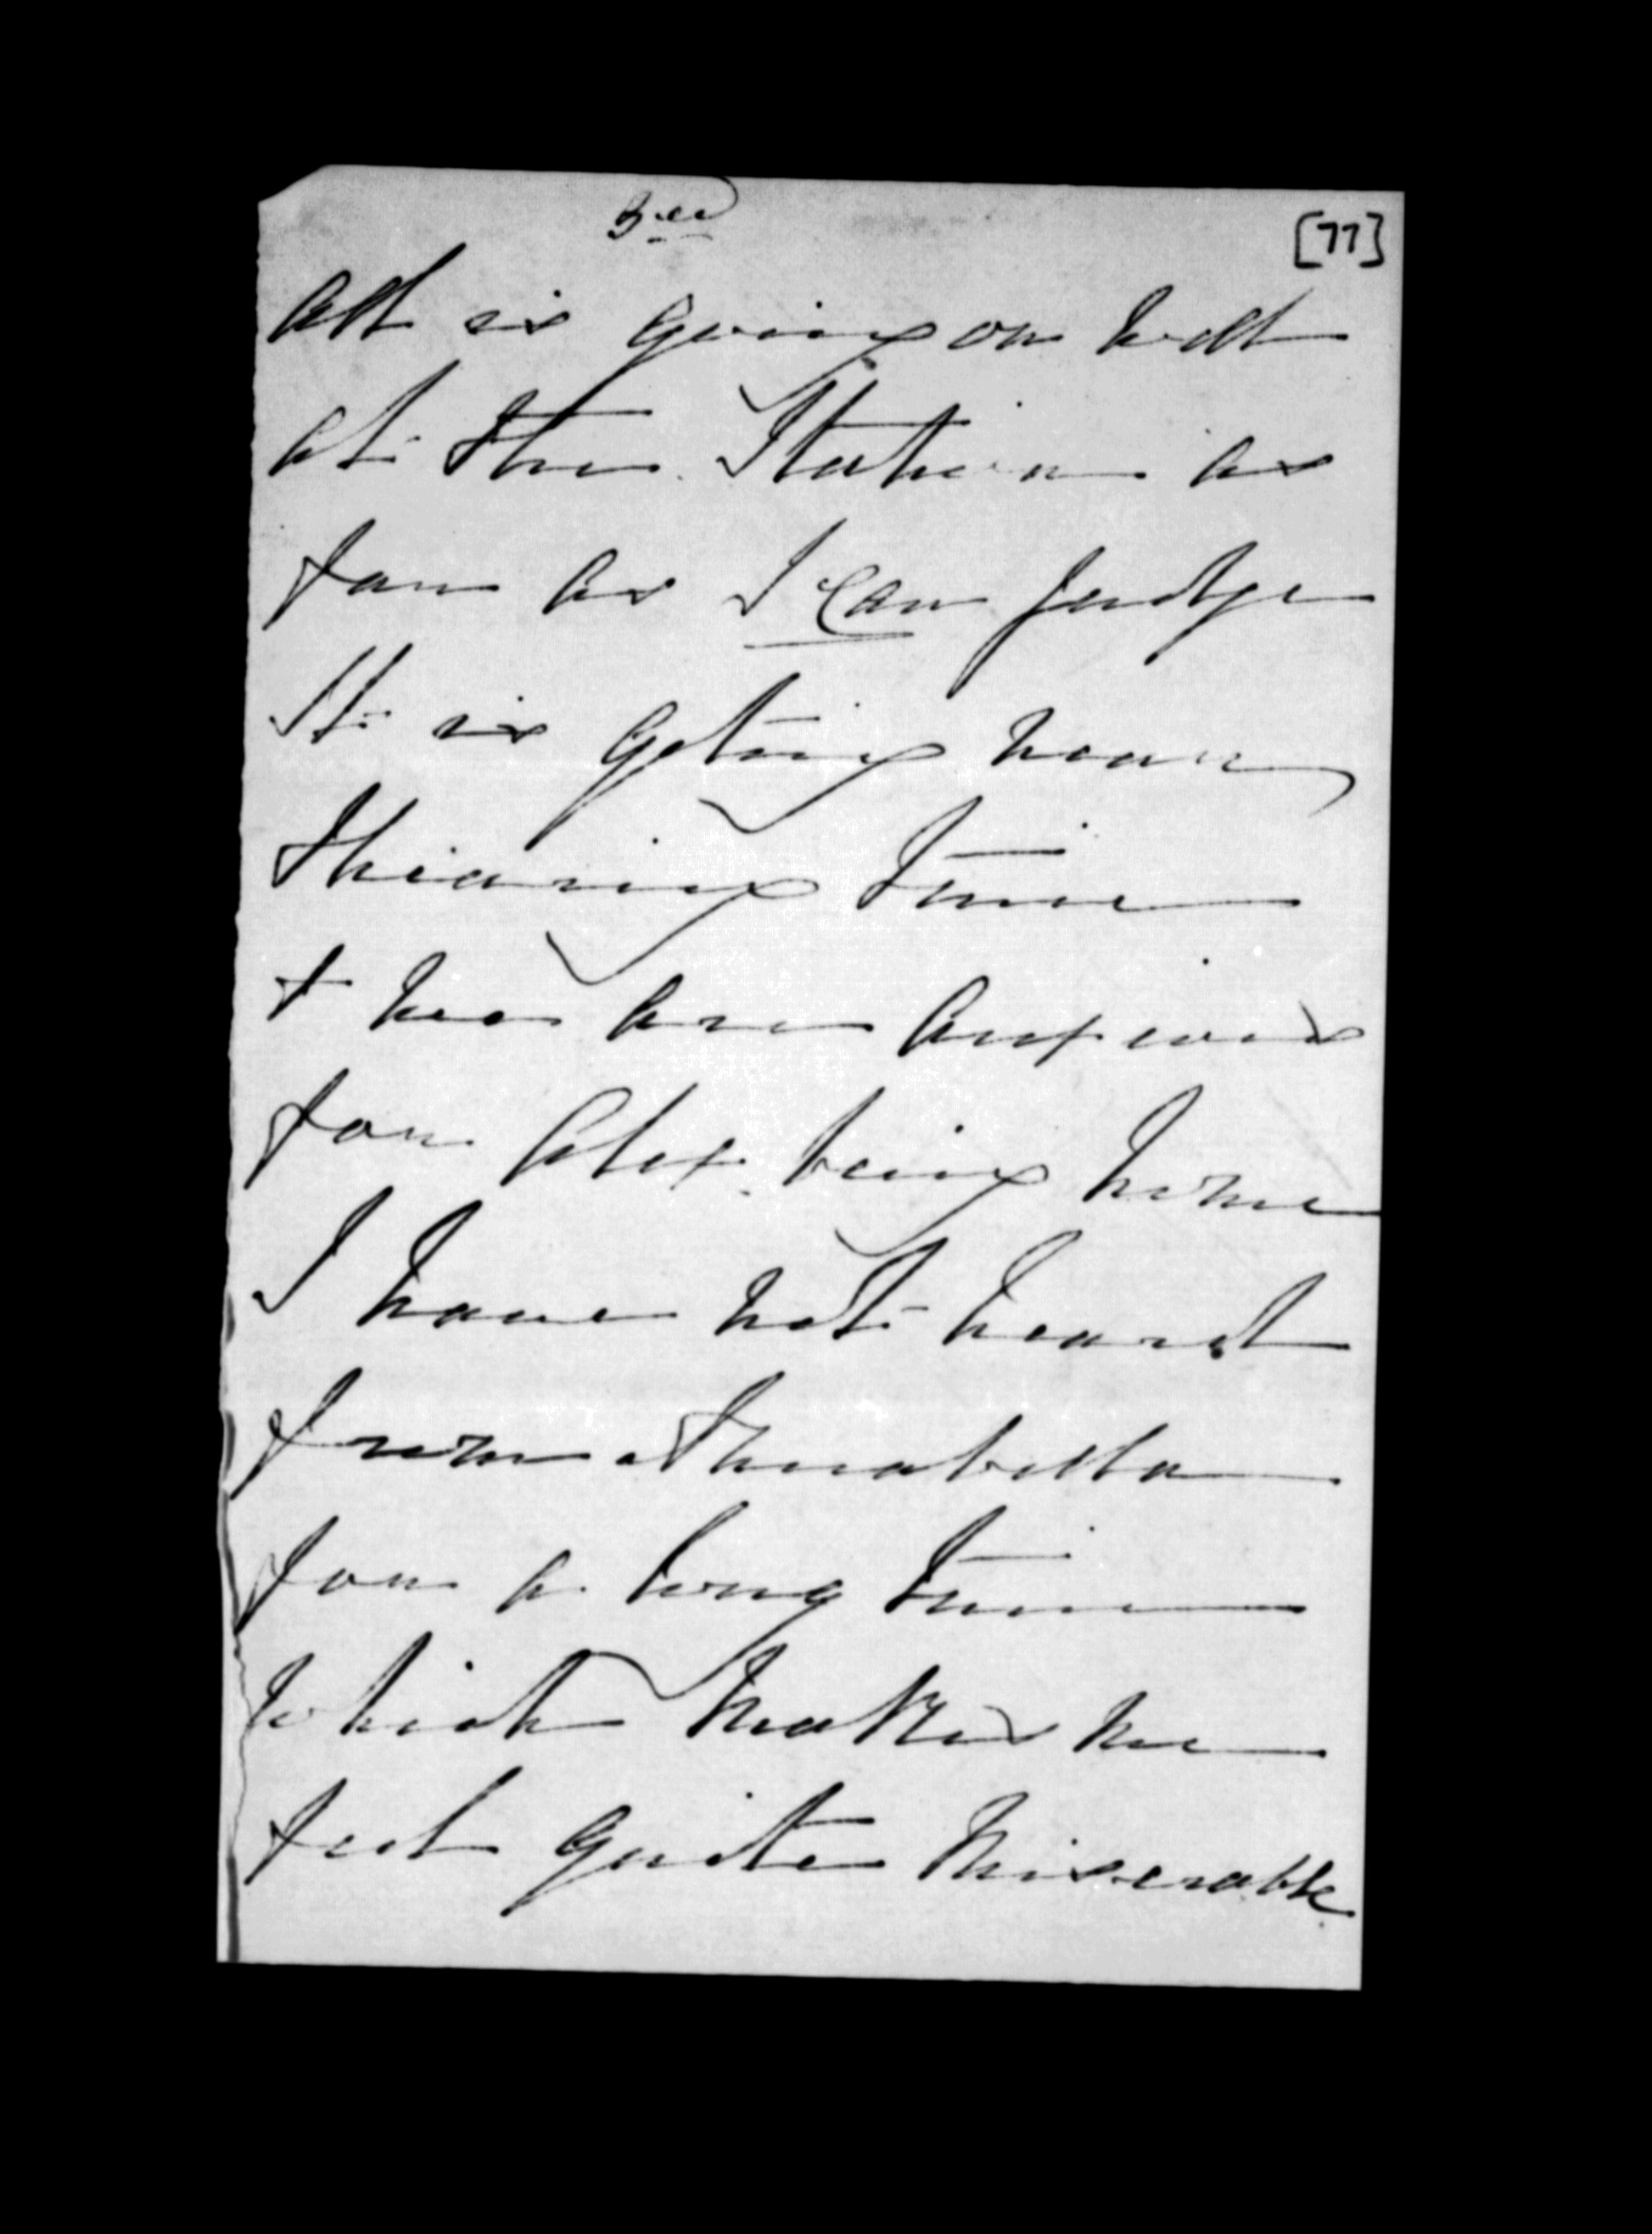 3rd
[77]
all is going on well
at the Station as
far as I can judge
It is geting near
Shearing time
& we are anxious
for Alex. being home
I have not heard
from Annabella
for a long time
which makes me
feel quite miserable